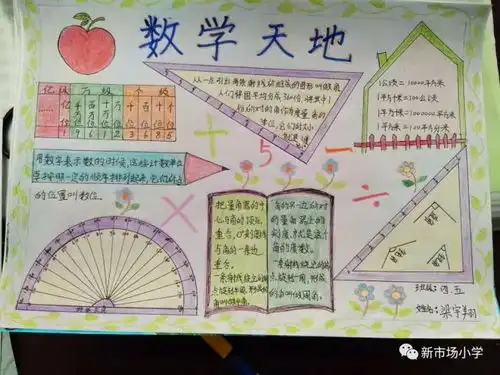 数学天地
从一点引出两条射线所组成的图形叫做角
人们将圆平均分成360份,将其中1
份所对的角作为度量角的
单位,它的大小
就是1°
1公顷=10000平方米
1平方千米=100公顷
1平方千米=1000000平方米
1平方米=100平方分米
亿级 万级 个级
亿位 千万位 百万位 十万位 万位 千位 百位 十位 个位
1 9 6 1 2 3 6 8 5
用数字表示数的时候,这些计数单位
要按照一定的顺序排列起来,它们所占
的位置叫数位。
+ 5 - × ÷
把量角器的中
心与角的顶点
重合,0°刻度线
与角的一条边
重合。
一条射线绕它的端
点旋转半周,形成的
角叫做平角。
角的另一边所对
的量角器上的
刻度,就是这个
角的度数。
一条射线绕它的端
点旋转一周,形成
的角叫做周角。
班级:四五
姓名:梁宇翔
新市场小学